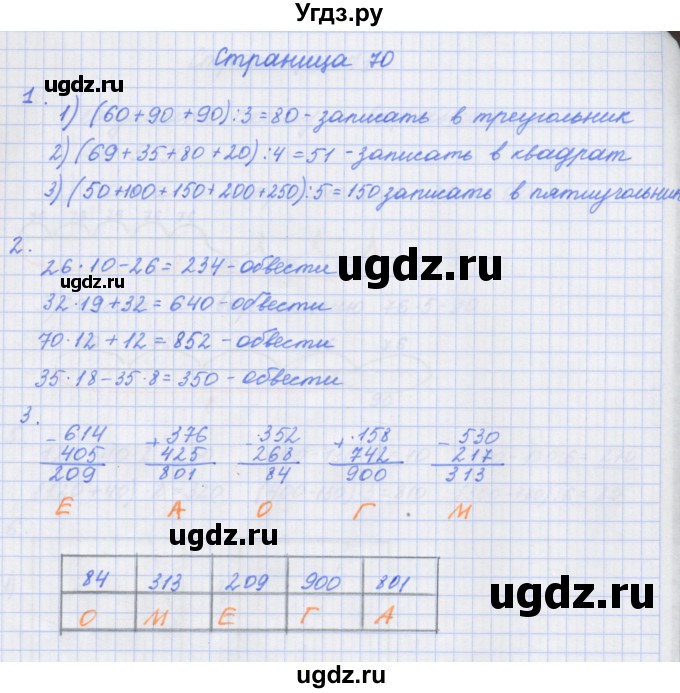 Угдз.ру
Страница 70
ugdz.ru
1.
1) (60+90+90):3=80 - записать в треугольник
2) (69+35+80+20):4=51 - записать в квадрат
3) (50+100+150+200+250):5=150 записать в пятиугольник
2.
26·10-26=234 - обвести
ugdz.ru
ugdz.ru
32·19+32=640 - обвести
70·12+12=852 - обвести
35·18-35·8=350 - обвести
ugdz.ru
3.
-614 +376 -352 +158 -530
405 425 268 742 217
209 801 84 900 313
Е А О Г М
ugdz.ru
84 313 209 900 801
ugdz.ru
О М Е Г А
ugdz.ru
ugdz.ru